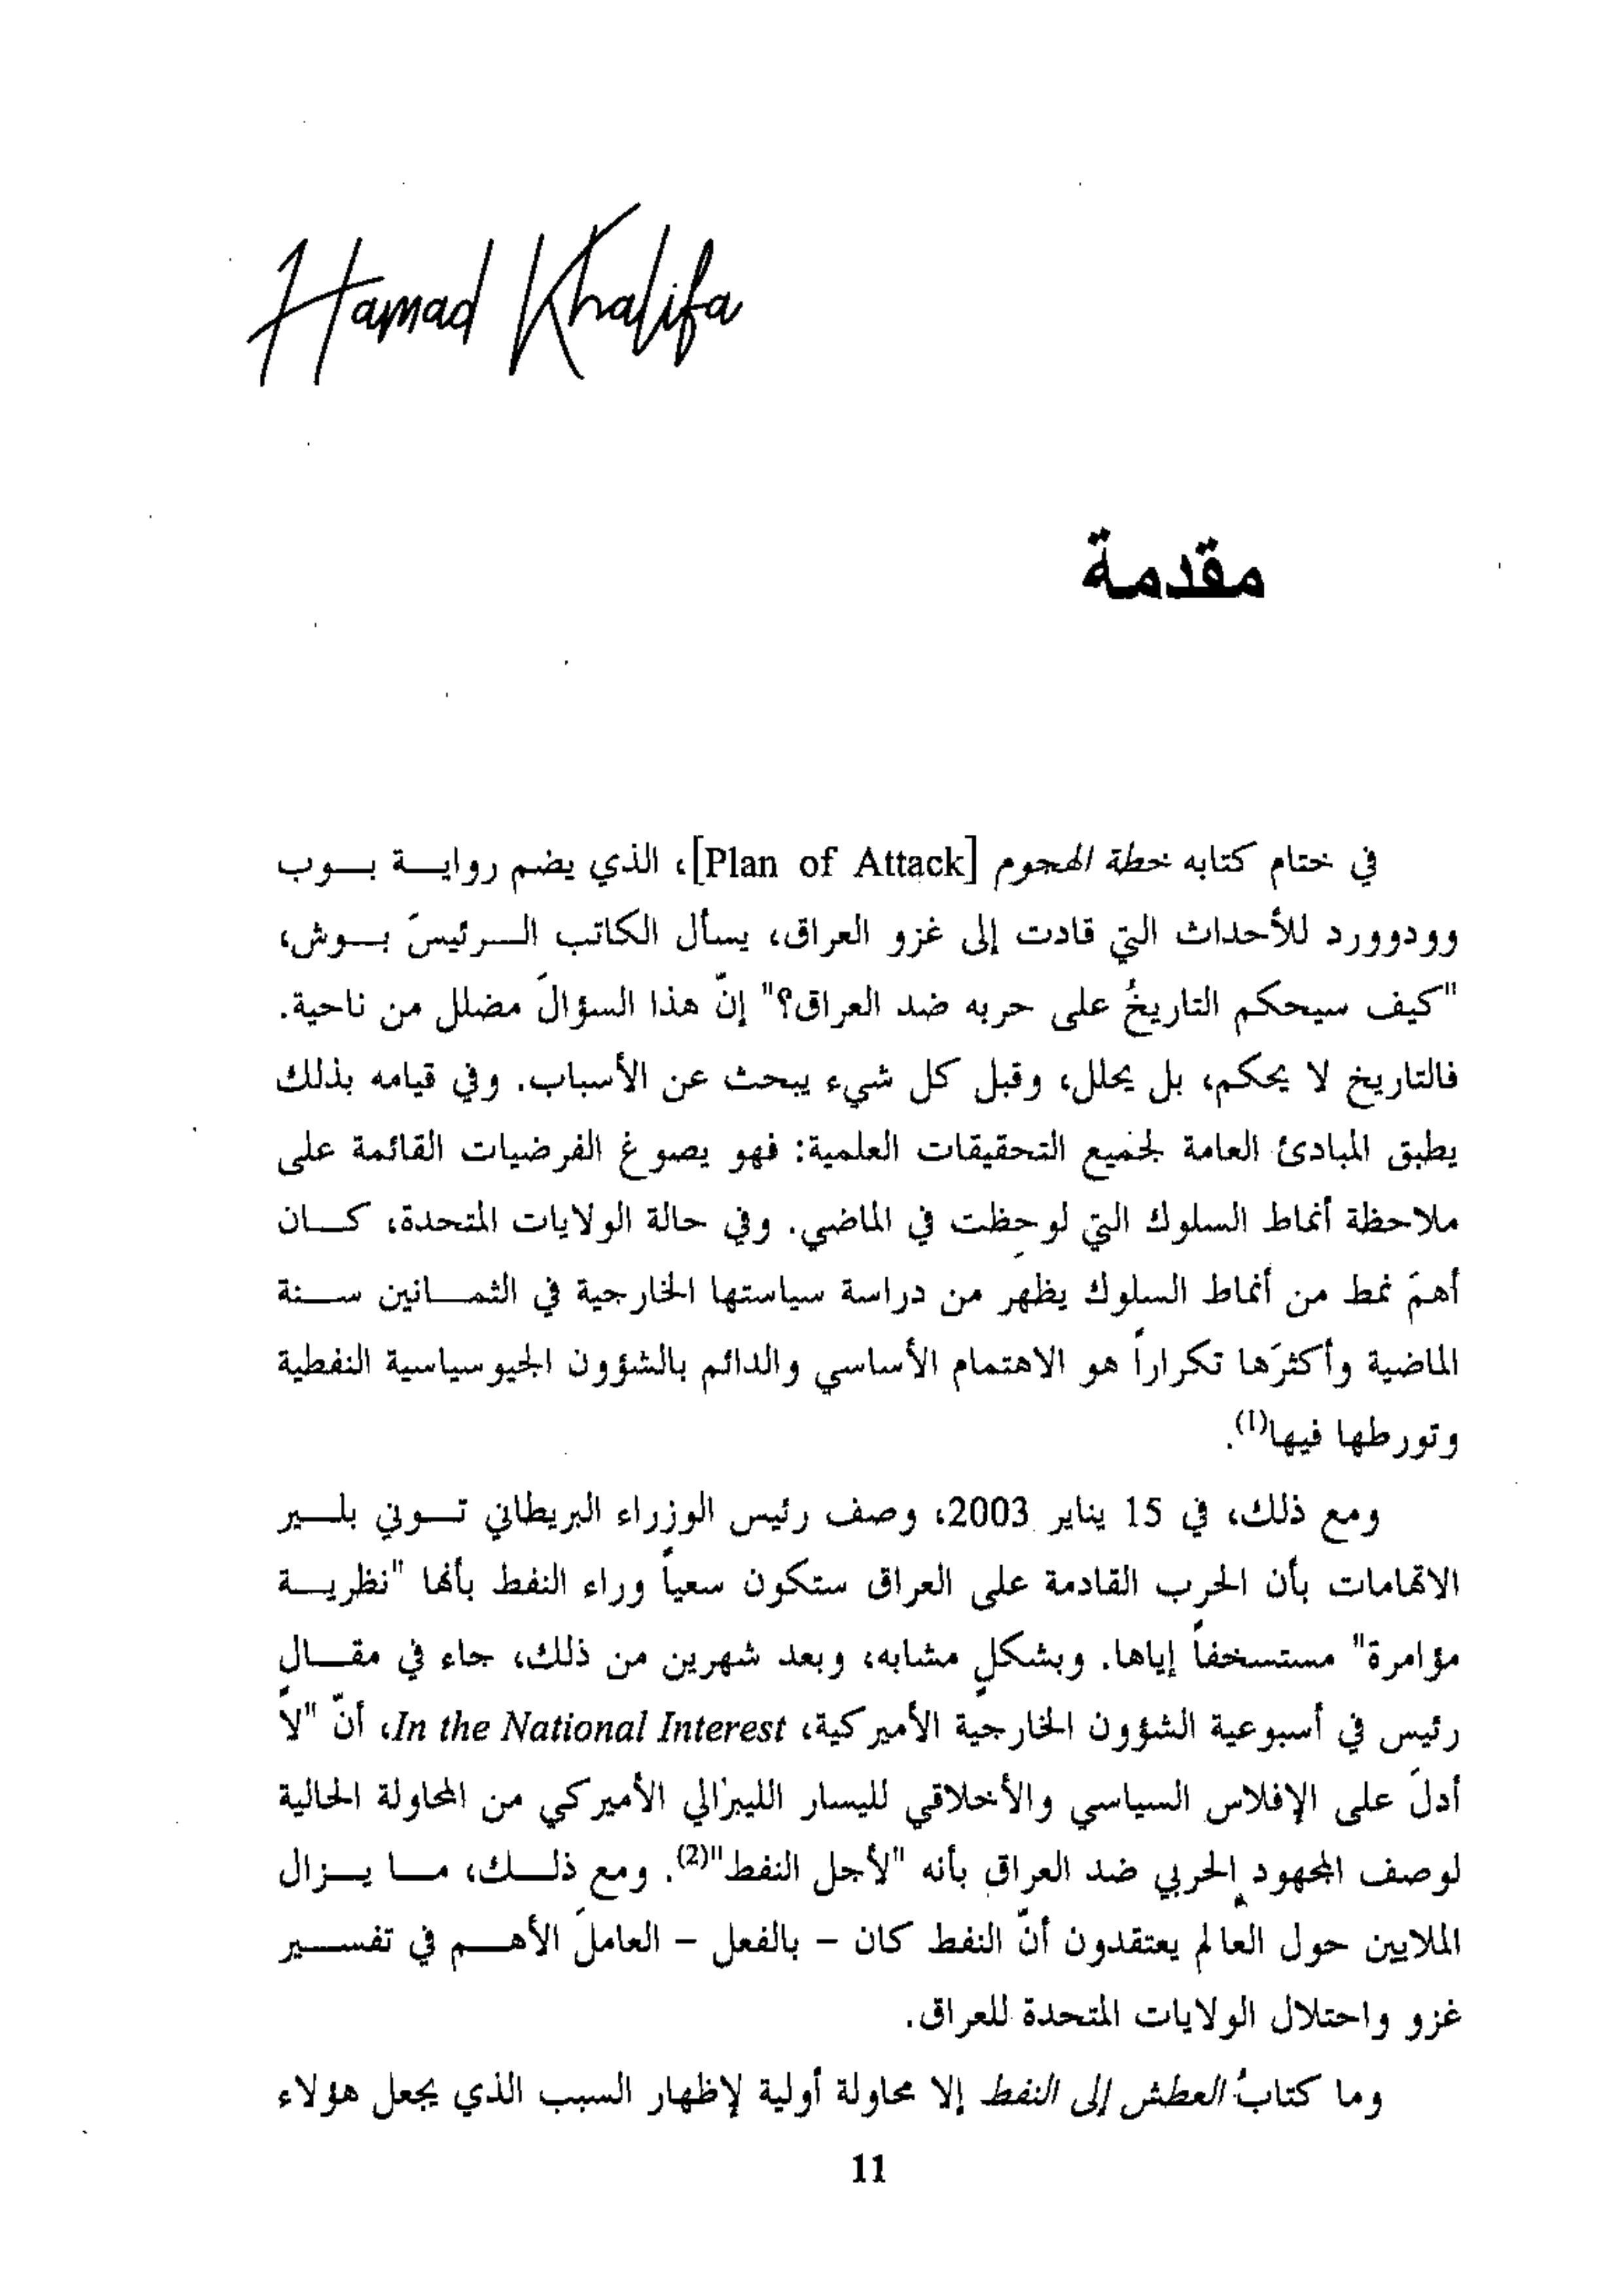 Hamad Khalifa
مقدمة
في ختام كتابه خطة الهجوم [Plan of Attack]، الذي يضم روايـــة بـــوب
وودوورد للأحداث التي قادت إلى غزو العراق، يسأل الكاتب الـــرئيسَ بـــوش،
"كيف سيحكم التاريخُ على حربه ضد العراق؟" إنّ هذا السؤالَ مضلل من ناحية.
فالتاريخ لا يحكم، بل يحلل، وقبل كل شيء يبحث عن الأسباب. وفي قيامه بذلك
يطبق المبادئ العامة لجميع التحقيقات العلمية: فهو يصوغ الفرضيات القائمة على
ملاحظة أنماط السلوك التي لوحِظت في الماضي. وفي حالة الولايات المتحدة، كـــان
أهمَ نمط من أنماط السلوك يظهر من دراسة سياستها الخارجية في الثمـــانين ســـنة
الماضية وأكثرَها تكراراً هو الاهتمام الأساسي والدائم بالشؤون الجيوسياسية النفطية
وتورطها فيها(1).
ومع ذلك، في 15 يناير 2003، وصف رئيس الوزراء البريطاني تـــوني بلـــير
الاتهامات بأن الحرب القادمة على العراق ستكون سعياً وراء النفط بأنها "نظريـــة
مؤامرة" مستسخفاً إياها. وبشكلٍ مشابه، وبعد شهرين من ذلك، جاء في مقـــالٍ
رئيس في أسبوعية الشؤون الخارجية الأميركية، In the National Interest، أنّ "لا
أدلَ على الإفلاس السياسي والأخلاقي لليسار الليبرالي الأميركي من المحاولة الحالية
لوصف المجهود الحربي ضد العراق بأنه "لأجل النفط"(2). ومع ذلـــك، مـــا يـــزال
الملايين حول العالم يعتقدون أنّ النفط كان – بالفعل – العاملَ الأهـــم في تفســـير
غزو واحتلال الولايات المتحدة للعراق.
وما كتابُ العطش إلى النفط إلا محاولة أولية لإظهار السبب الذي يجعل هؤلاء
11